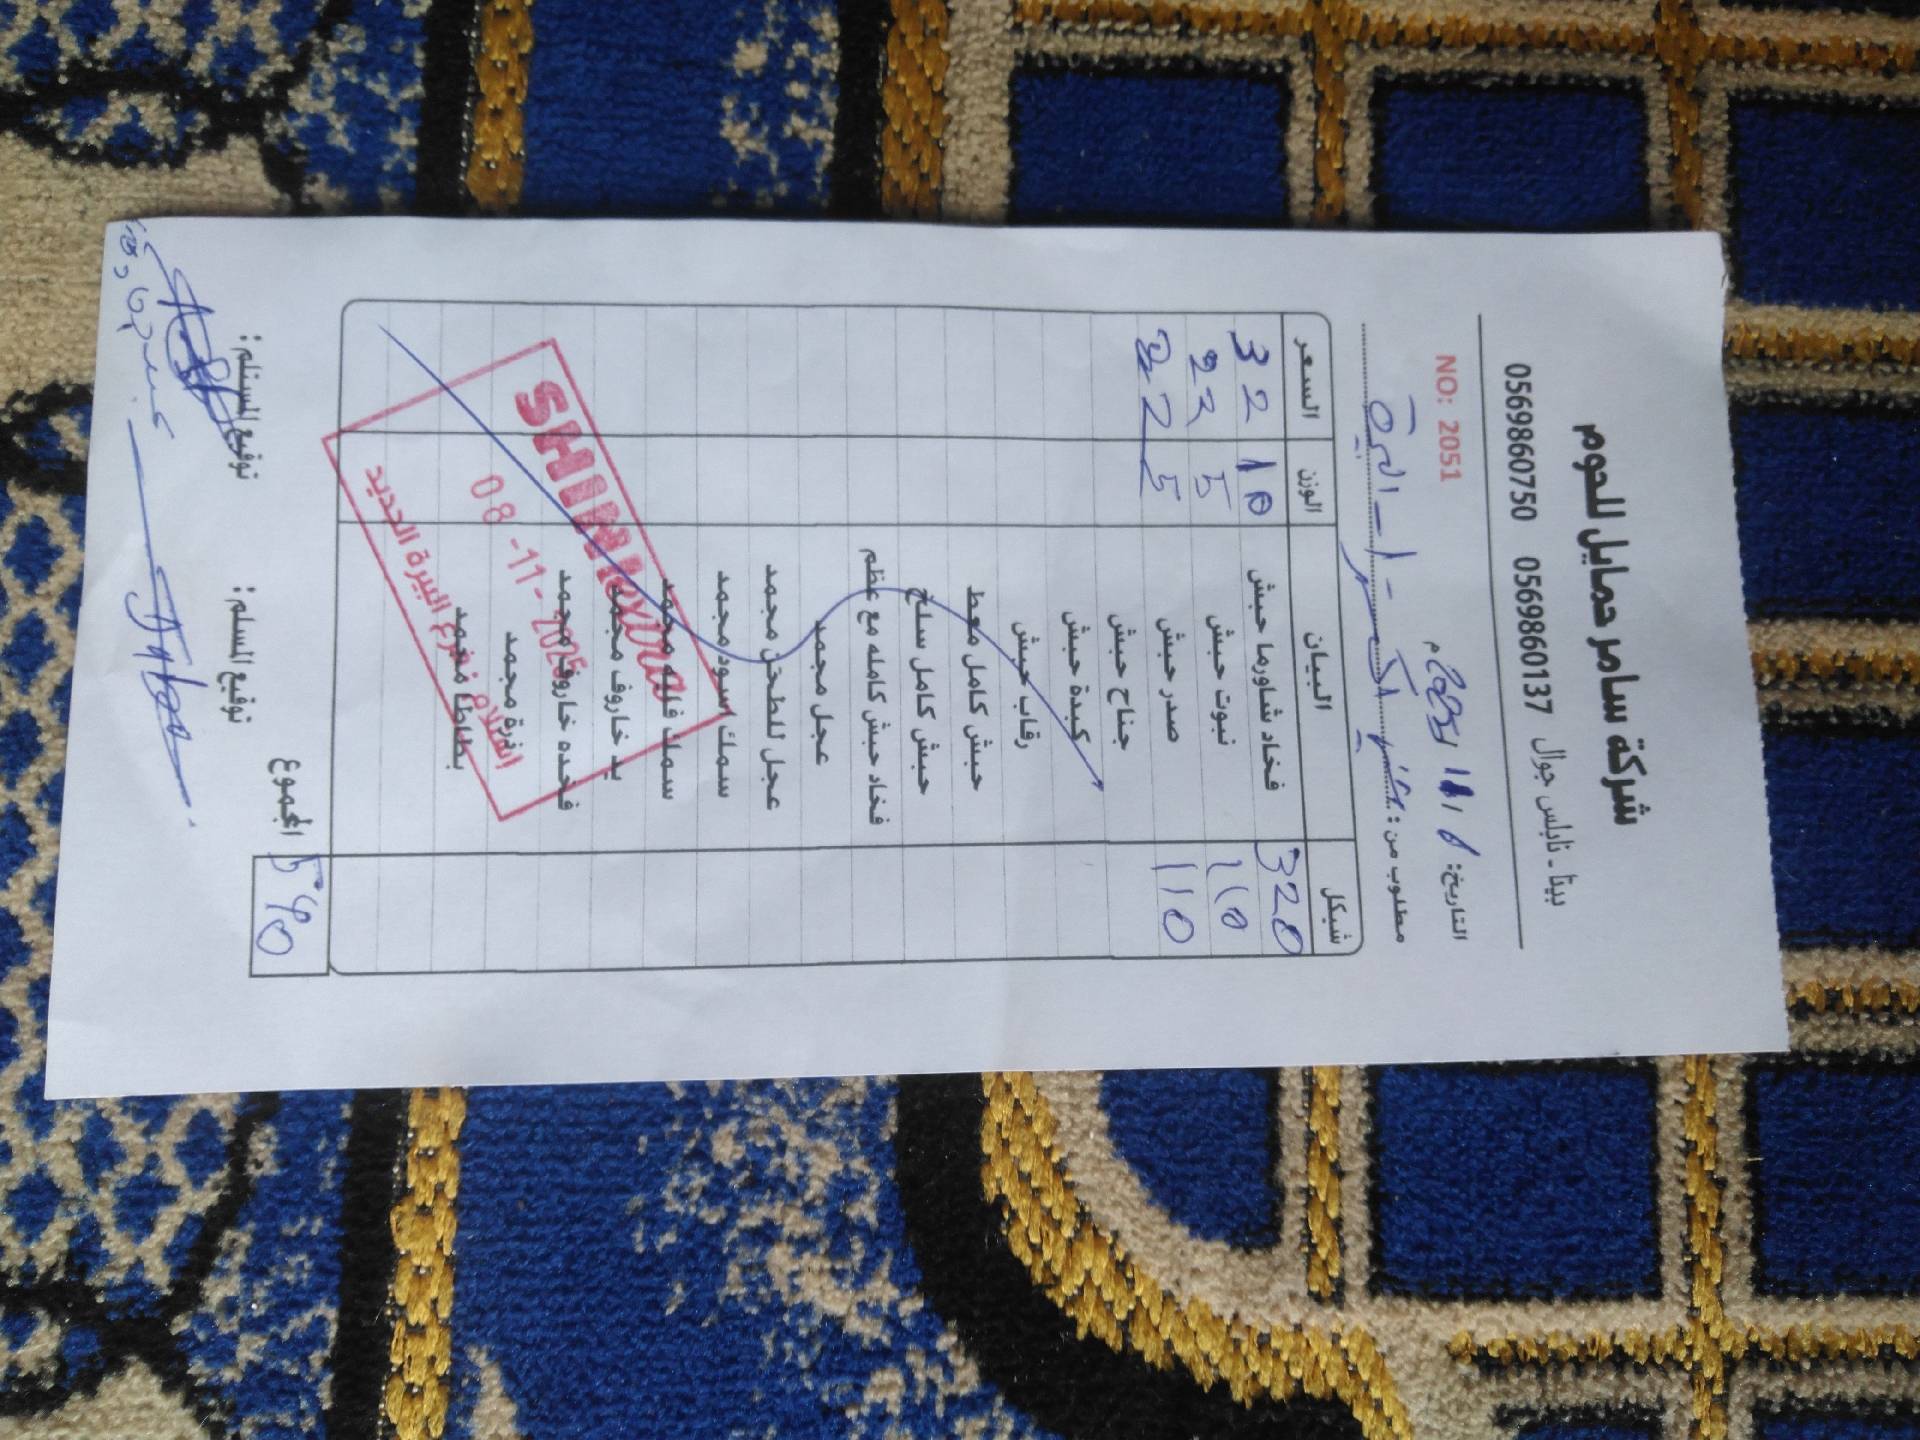 شركة سامر حمايل للحوم
بيتا - نابلس جوال 0569860137 0569860750
التاريخ: 8 / 11 / 2025م NO: 2051
مطلوب من: - 1 - البيرة
شيكل البيان الوزن السعر
320 فخاد شاورما حبش 10 32
110 نبوت حبش 5 22
110 صدر حبش 5 22
جناح حبش
كبدة حبش
رقاب حبش
حبش كامل معط
حبش كامل سلخ
فخاد حبش كامله مع عظم
عجل مجمد
عجل للطحن مجمد
سمك اسود مجمد
سمك فليه مجمد
يد خاروف مجمد
فخده خاروف مجمد
اذرة مجمد
بطاطا مجمد
SHINI extra
08-11-2025
فرع البيرة الجديد
المجموع 540
توقيع المسلم: توقيع المستلم: